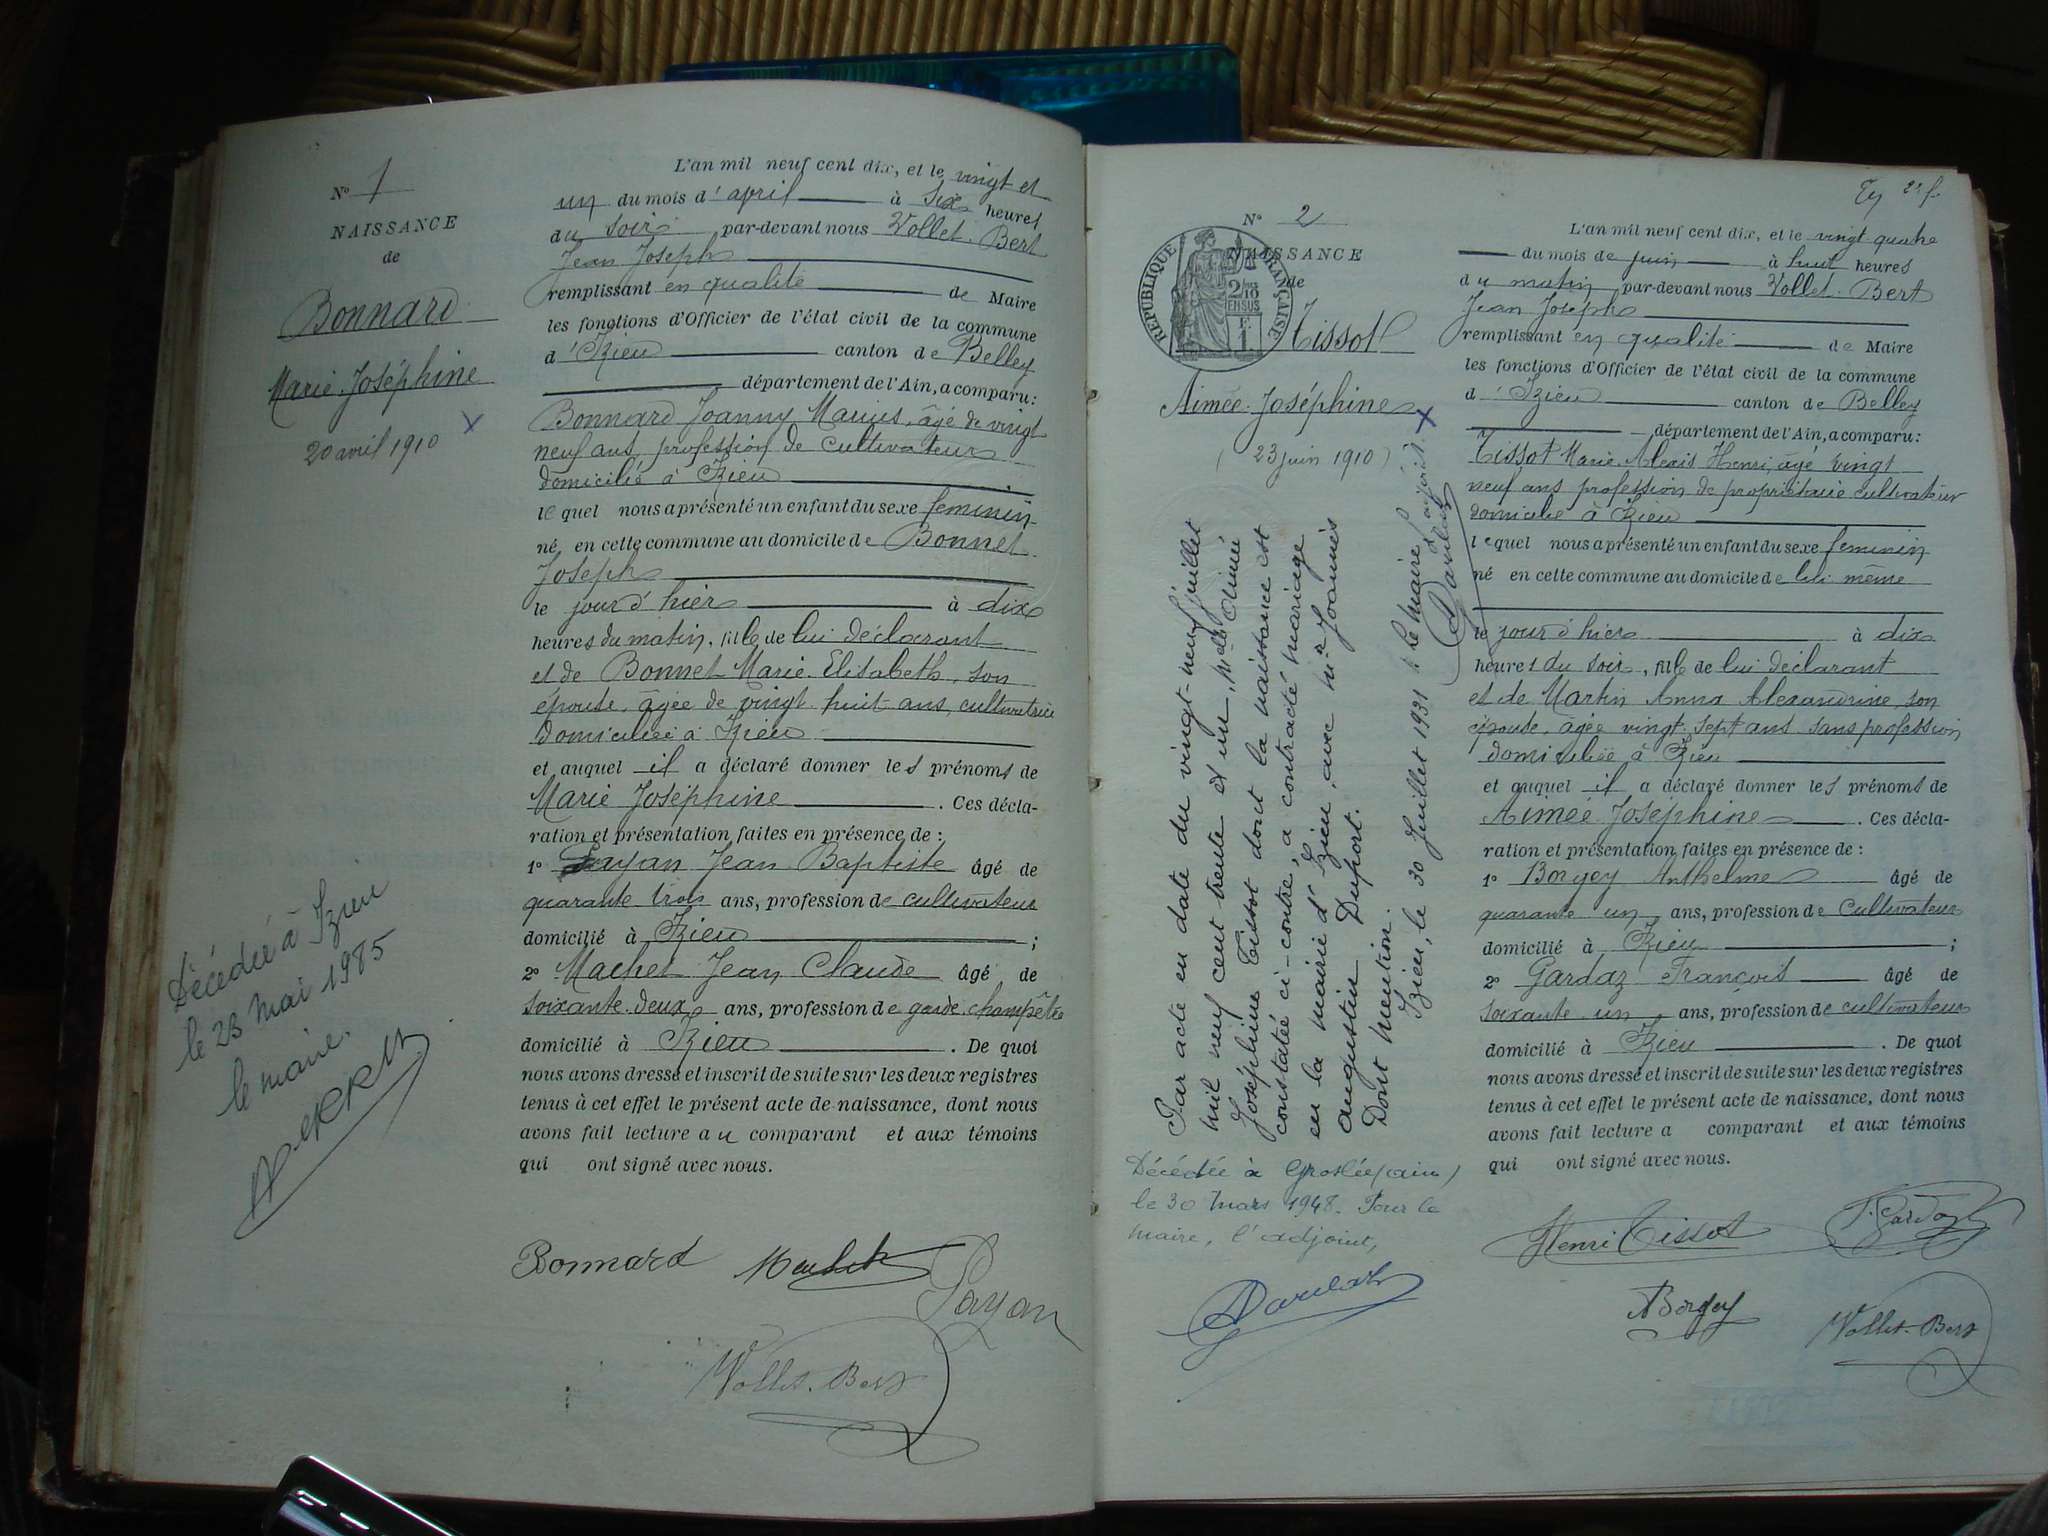 N° 1
NAISSANCE
de
Bonnard
Marie Joséphine
20 avril 1910
Décédée à Izieu
le 23 Mai 1985
le maire.
L'an mil neuf cent dix, et le vingt et
un du mois d' april à six heures
du soir par-devant nous Vollet-Bert
Jean Joseph
remplissant en qualité de Maire
les fonctions d'Officier de l'état civil de la commune
d' Izieu canton de Belley
département de l'Ain, a comparu:
Bonnard Joanny Marius, âgé de vingt
neuf ans, profession de cultivateur
domicilié à Izieu
lequel nous a présenté un enfant du sexe feminin
né en cette commune au domicile de Bonnet
Joseph
le jour d'hier à dix
heures du matin, fille de lui déclarant
et de Bonnet Marie Elisabeth, son
épouse, âgée de vingt huit ans, cultivatrice
domiciliée à Izieu
et auquel il a déclaré donner les prénoms de
Marie Joséphine . Ces décla-
ration et présentation faites en présence de :
1° Payan Jean Baptiste âgé de
quarante trois ans, profession de cultivateur
domicilié à Izieu ;
2° Machet Jean Claude âgé de
soixante deux ans, profession de garde champêtre
domicilié à Izieu . De quoi
nous avons dressé et inscrit de suite sur les deux registres
tenus à cet effet le présent acte de naissance, dont nous
avons fait lecture au comparant et aux témoins
qui ont signé avec nous.
Bonnard Machet
Payan
Vollet-Bert
N° 2
NAISSANCE
de
RÉPUBLIQUE FRANÇAISE
2/10
EN SUS
F.
1.
Tissot
Aimée Joséphine
(23 juin 1910)
Par acte en date du vingt-neuf juillet
mil neuf cent trente et un, Mlle Aimée
Joséphine Tissot dont la naissance est
constatée ci-contre, a contracté mariage
en la mairie d'Izieu, avec Mr Joannès
Augustin Duport.
Dont mention.
Izieu, le 30 Juillet 1931 Le Maire
Décédée à Groslée (Ain)
le 30 Mars 1948. Pour le
maire, l'adjoint,
L'an mil neuf cent dix, et le vingt quatre
du mois de juin à huit heures
du matin par-devant nous Vollet-Bert
Jean Joseph
remplissant en qualité de Maire
les fonctions d'Officier de l'état civil de la commune
d' Izieu canton de Belley
département de l'Ain, a comparu:
Tissot Marie Alexis Henri, âgé vingt
neuf ans profession de propriétaire cultivateur
domicilié à Izieu
lequel nous a présenté un enfant du sexe feminin
né en cette commune au domicile de lui même
le jour d'hier à dix
heures du soir, fille de lui déclarant
et de Martin Anna Alexandrine, son
épouse, âgée vingt sept ans sans profession
domiciliée à Izieu
et auquel il a déclaré donner les prénoms de
Aimée Joséphine . Ces décla-
ration et présentation faites en présence de :
1° Borgey Anthelme âgé de
quarante un ans, profession de cultivateur
domicilié à Izieu ;
2° Gardaz François âgé de
soixante un ans, profession de cultivateur
domicilié à Izieu . De quoi
nous avons dressé et inscrit de suite sur les deux registres
tenus à cet effet le présent acte de naissance, dont nous
avons fait lecture a comparant et aux témoins
qui ont signé avec nous.
Henri Tissot F. Gardaz
A Borgey
Vollet-Bert